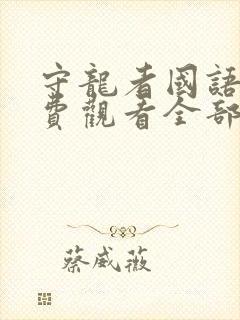 守龍者國語
費觀看全部
蔡威薇